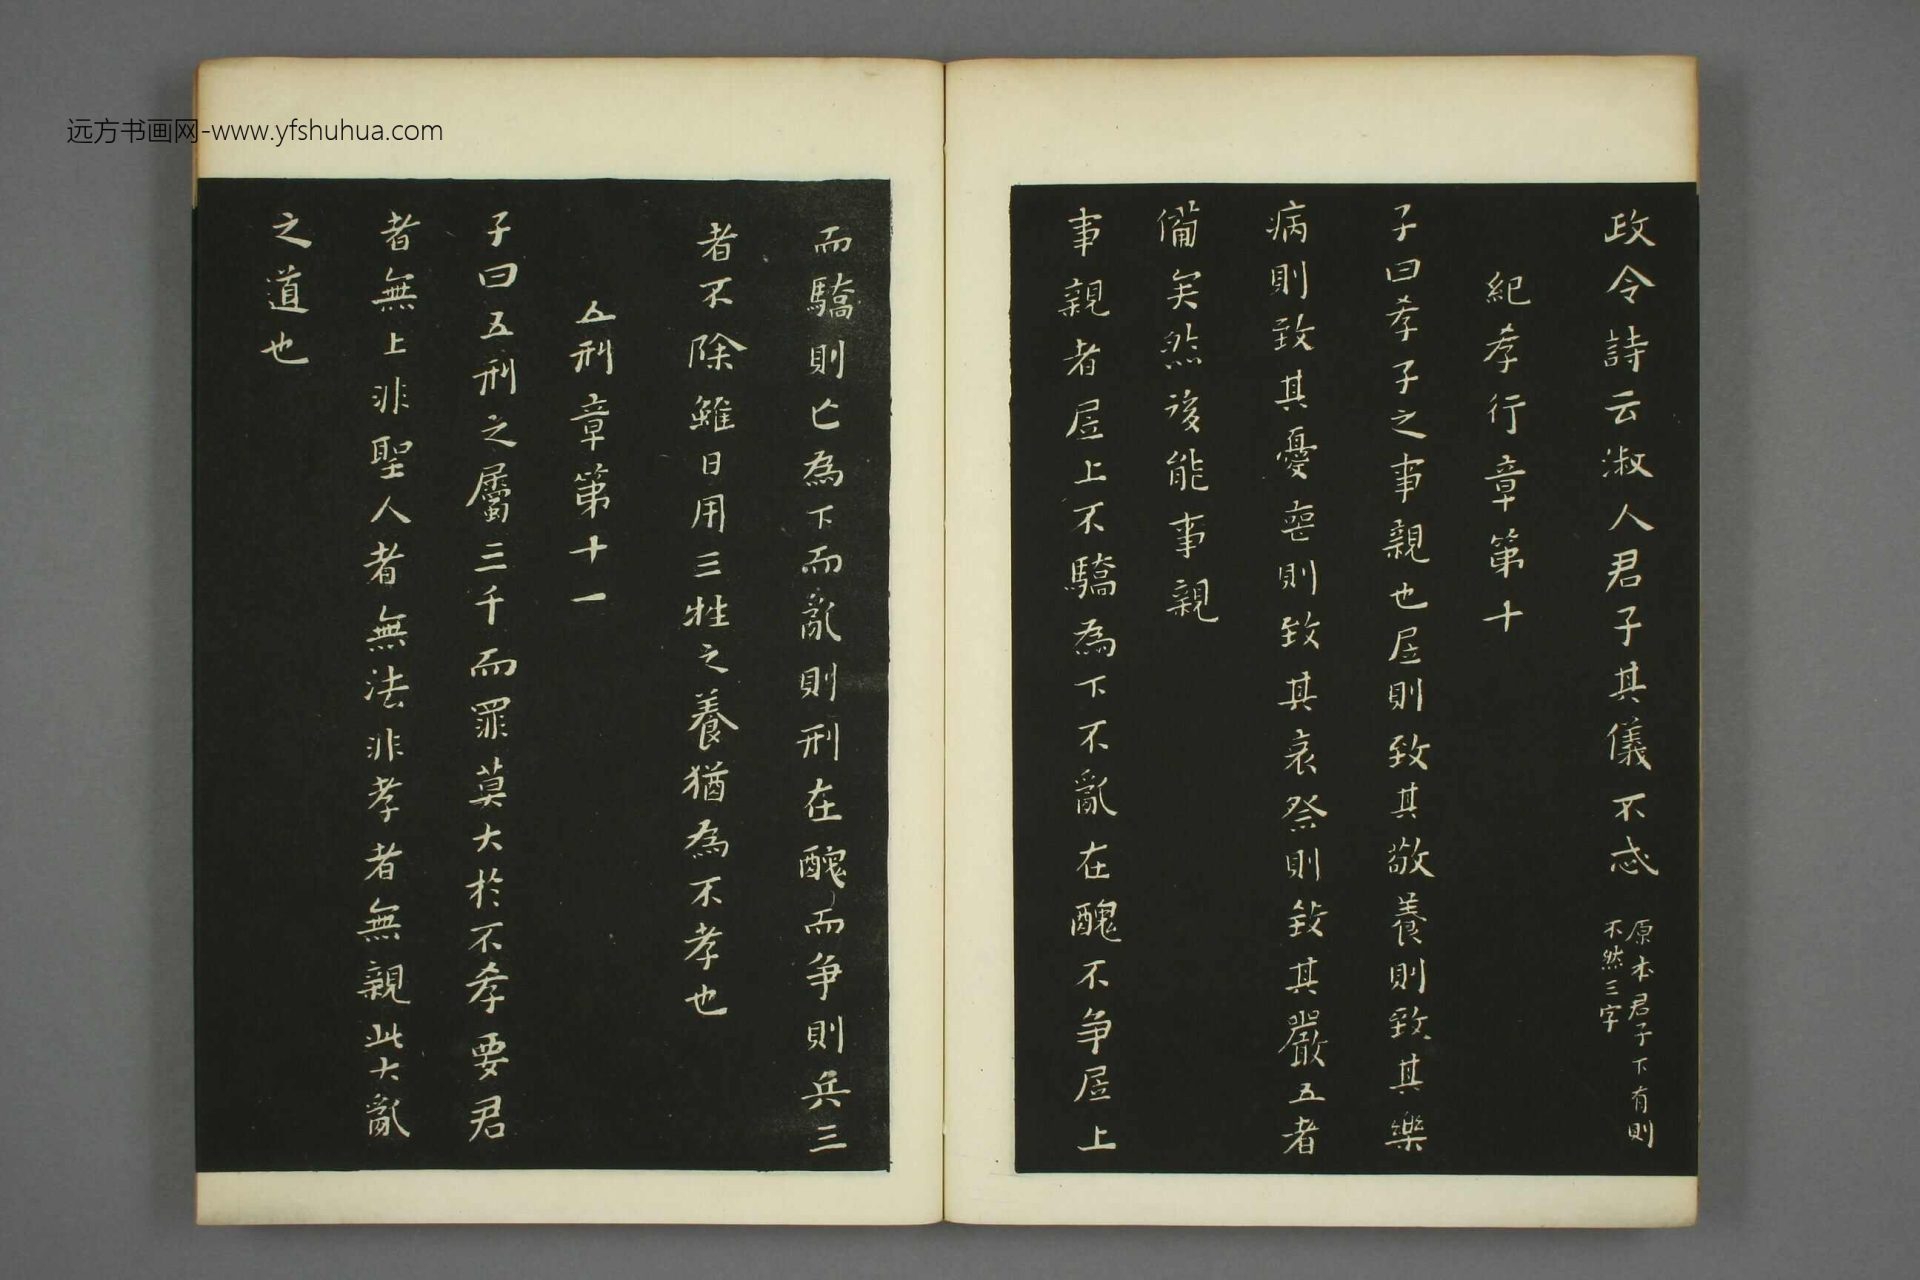 远方书画网-www.yfshuhua.com
政令詩云淑人君子其儀不忒
原本君子下有則
不然三字
紀孝行章第十
子曰孝子之事親也居則致其敬養則致其樂
病則致其憂喪則致其哀祭則致其嚴五者
備矣然後能事親
事親者居上不驕為下不亂在醜不爭居上
而驕則亡為下而亂則刑在醜而爭則兵三
者不除雖日用三牲之養猶為不孝也
五刑章第十一
子曰五刑之屬三千而罪莫大於不孝要君
者無上非聖人者無法非孝者無親此大亂
之道也